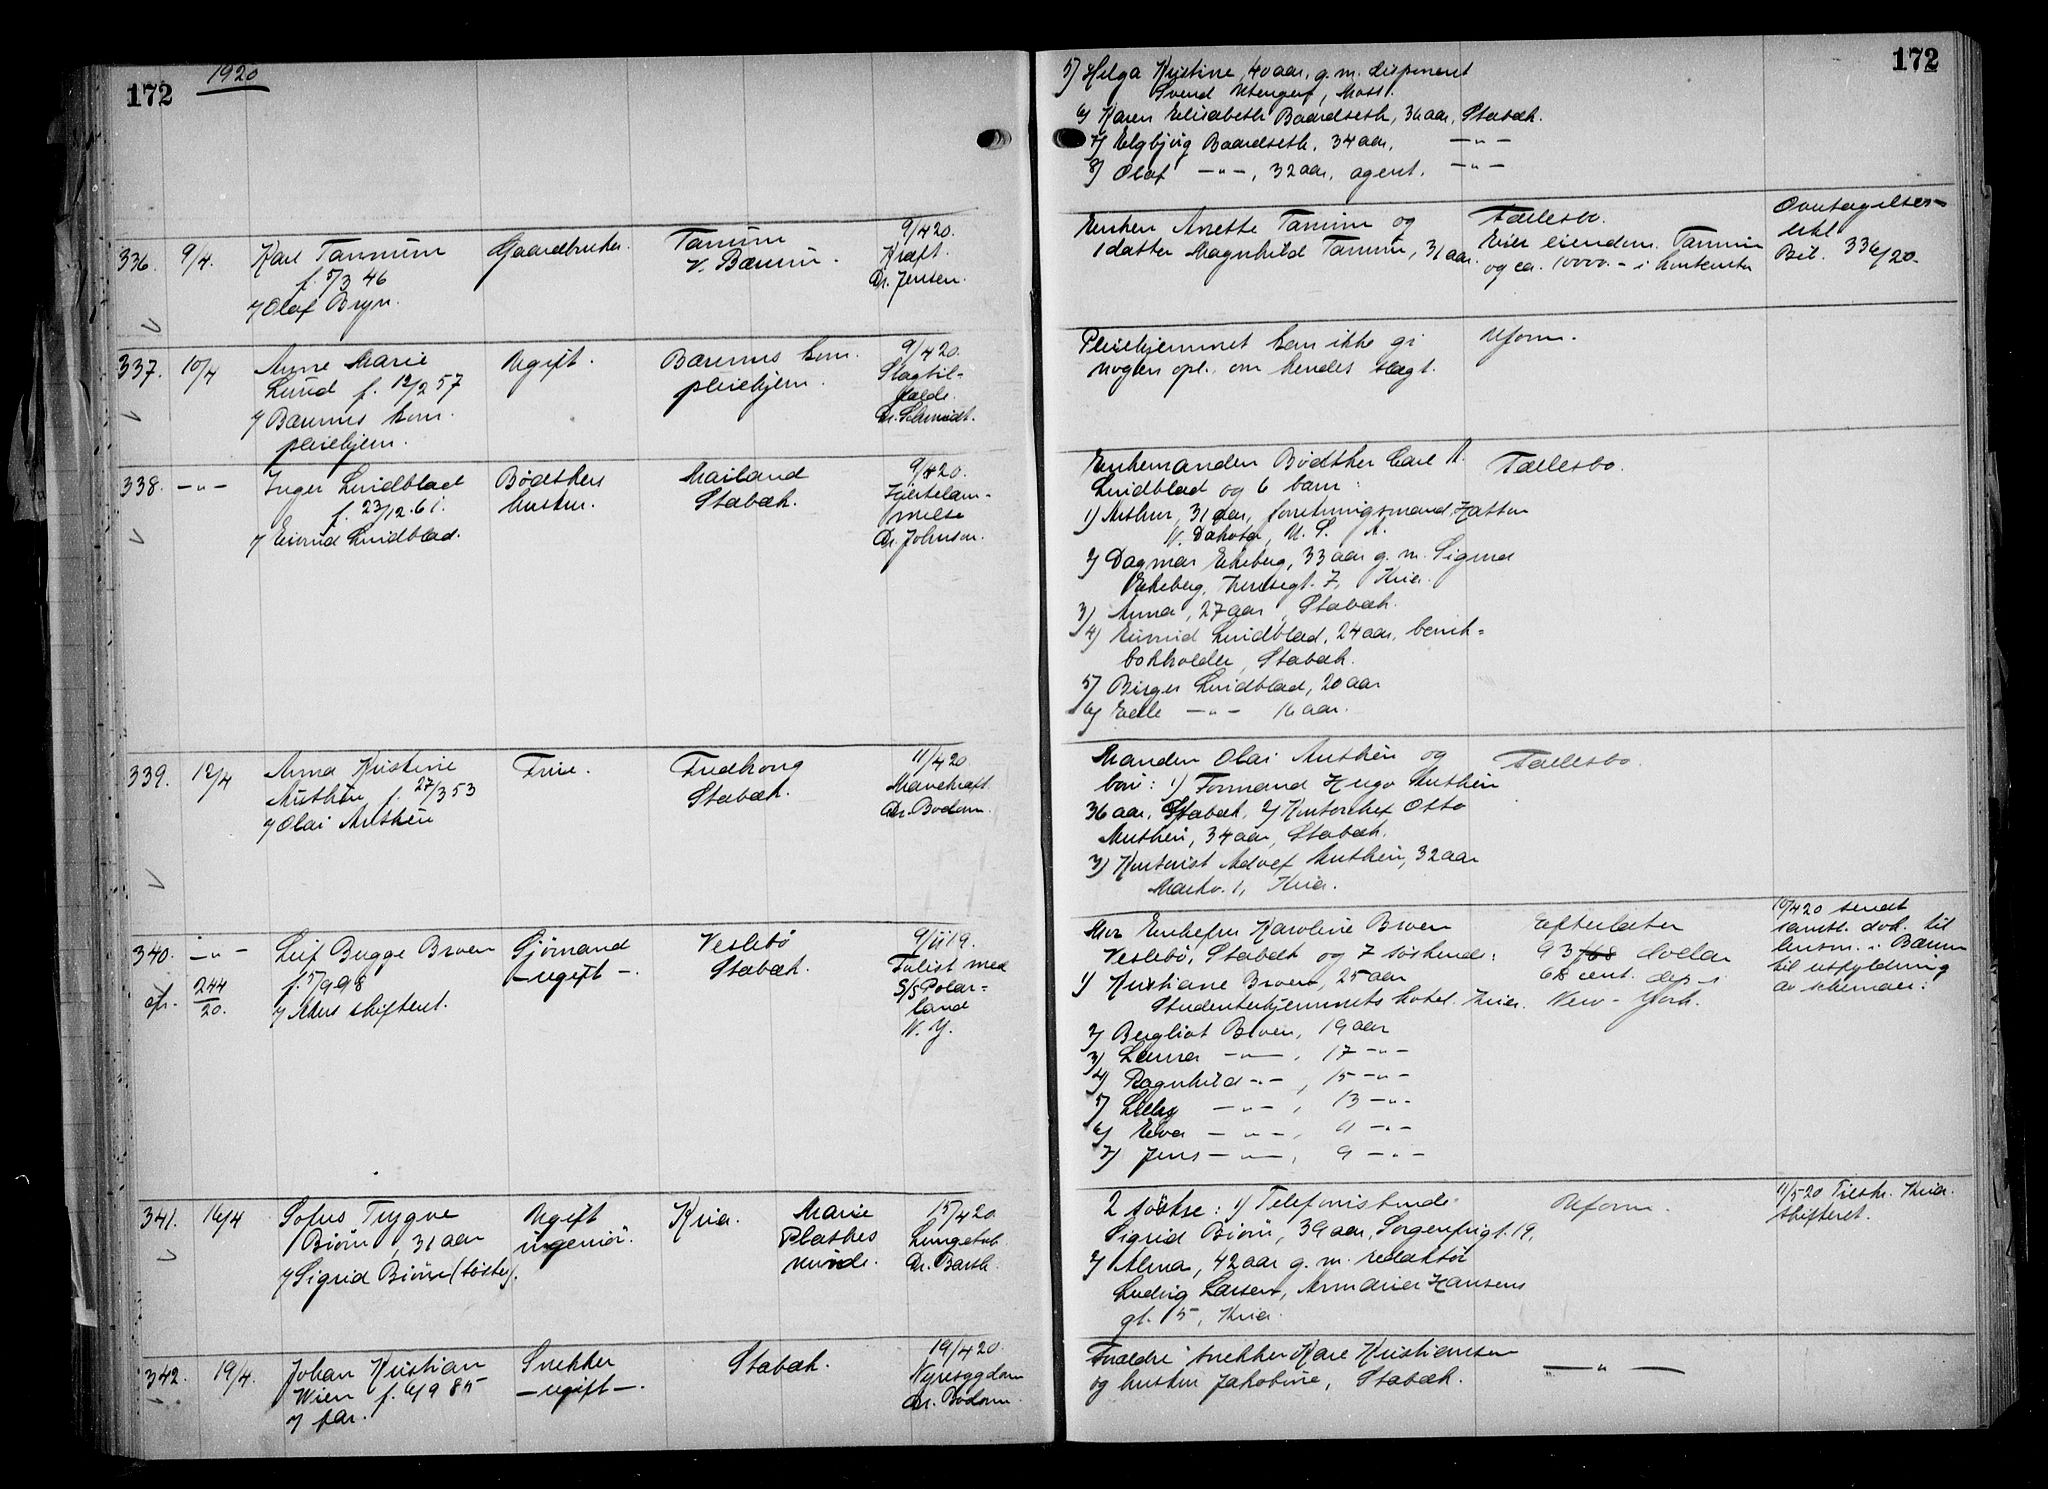 172
1920
336.
9/4.
Karl Tannum
f. 5/3 46
Olaf Bryn.
Gaardbruker.
Tanum
V. Bærum.
9/4 20.
Kræft.
Dr. Jensen.
337.
10/4
Anne Marie
Lund f. 12/2 57
Bærums kom.
pleiehjem.
Ugift.
Bærums kom.
pleiehjem.
9/4 20.
Slagtil-
fælde.
Dr. Schmidt.
338.
-"-
Inger Lindblad
f. 23/12.61.
Eivind Lindblad.
Bødtkers
hustru.
Mailand
Stabæk.
9/4 20.
Hjertelam-
melse
Dr. Johnson.
339.
12/4
Anna Kristine
Muthén f. 27/3 53
Olai Muthén
Frue.
Fredkong
Stabæk.
11/4 20.
Mavekræft
Dr. Bodom.
340.
-"-
cfr. 244/20.
Leif Bugge Broen
f. 5/9 98
Akers skifteret.
Sjømand
- ugift -.
Veslebø
Stabæk.
9/11 19.
Forlist med
S/S Polar-
land
N. Y.
341.
16/4
Sofus Trygve
Biørn, 31 aar
Sigrid Biørn (søster).
Ugift
ingeniør.
Kria.
Marie
Plathes
minde.
15/4 20.
Lungetub.
Dr. Barth.
342.
19/4.
Johan Kristian
Wien f. 6/9 85
far.
Snekker
- ugift -.
Stabæk.
19/4 20.
Nyresygdom
Dr. Bodom.
172
5) Helga Kristine, 40 aar, g. m. disponent
Svend , Moss.
6) Karen Elisabeth Baardseth, 36 aar, Stabæk.
7) Baardseth, 34 aar, -"-
8) Olaf -"-, 32 aar, agent. -"-
Enken Anette Tanum og
1 datter Magnhild Tanum, 31 aar.
Fællesbo.
Eier eiendom. Tanum
og ca. 10000.- i kontanter
Overtagelses-
erkl.
Bil. 336/20.
Pleiehjemmet kan ikke gi
nogen opl. om hendes slegt.
Uform.
Enkemanden Bødtker Carl A.
Lindblad og 6 barn:
1) Arthur, 31 aar, forretningsmand, Hatton
N. Dakota, U. S. A.
2) Dagmar Ekeberg, 33 aar g. m. Sigurd
Ekeberg, 7, Kria.
3) Anna, 27 aar, Stabæk.
4) Eivind Lindblad, 24 aar, bank-
bokholder, Stabæk.
5) Birger Lindblad, 20 aar
6) Edle -"- 16 aar.
Fællesbo.
Manden Olai Muthén og
barn: 1) Formand Hugo Muthén
36 aar, Stabæk, 2) Kontorchef Otto
Muthén, 34 aar, Stabæk.
3) Kontorist Adolf Muthén, 32 aar
Markv. 1, Kria.
Fællesbo.
Mor Enkefru Karoline Broen
Veslebø, Stabæk og 7 søskende:
1) Kristiane Broen, 25 aar
Studenterhjemmets hotel. Kria.
2) Bergliot Broen, 19 aar
3) Laura -"-, 17 -"-
4) Ragnhild -"-, 15 -"-
5) Lilly -"-, 13 -"-
6) Elva -"-, 11 -"-
7) Jens -"-, 9 -"-
Efterlater
93 dollar
68 cent. dep. i
New-York.
10/4 20 sendt
samtl. dok. til
lensm. i Bærum
til utfyldning
av skemaer.
2 søstre: 1) Telefonistinde
Sigrid Biørn, 39 aar, Sorgenfrigt. 19,
2) Alma, 42 aar g. m. redaktør
Ludvig Larsen, Annanias Hansens
gt. 5, Kria.
Uform.
11/5-20 Tilskr. Kria.
skifteret.
Forældre snekker Karl Kristiansen
og hustru Jakobine, Stabæk.
-"-